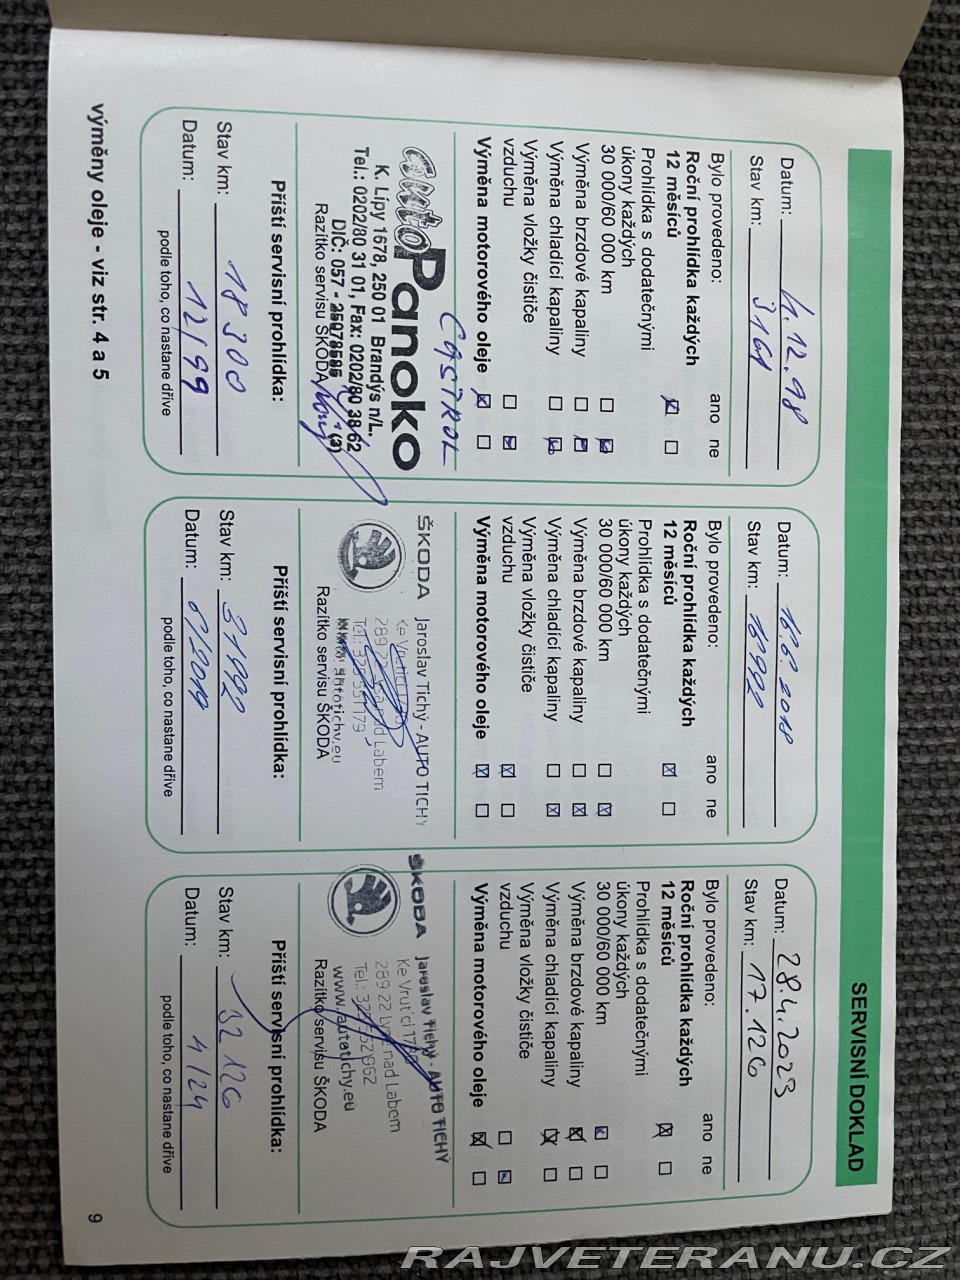 SERVISNÍ DOKLAD
Datum: 4.12.98
Stav km: 3161
Bylo provedeno: ano ne
Roční prohlídka každých
12 měsíců
Prohlídka s dodatečnými
úkony každých
30 000/60 000 km
Výměna brzdové kapaliny
Výměna chladící kapaliny
Výměna vložky čističe
vzduchu
Výměna motorového oleje
CASTROL
autoPanoko
K. Lípy 1678, 250 01 Brandýs n/L.
Tel.: 0202/80 31 01, Fax: 0202/80 38 62
DIČ: 057 - 25078585 (3)
Razítko servisu ŠKODA
Příští servisní prohlídka:
Stav km: 18 300
Datum: 12/99
podle toho, co nastane dříve
Datum: 16.6.2018
Stav km: 16992
Bylo provedeno: ano ne
Roční prohlídka každých
12 měsíců
Prohlídka s dodatečnými
úkony každých
30 000/60 000 km
Výměna brzdové kapaliny
Výměna chladící kapaliny
Výměna vložky čističe
vzduchu
Výměna motorového oleje
ŠKODA Jaroslav Tichý - AUTO TICHÝ
Ke Vrutici
289 22 Lysá nad Labem
Tel.: 325 551 179
www.autotichy.eu
Razítko servisu ŠKODA
Příští servisní prohlídka:
Stav km: 31992
Datum: 6/2019
podle toho, co nastane dříve
Datum: 28.4.2023
Stav km: 17.126
Bylo provedeno: ano ne
Roční prohlídka každých
12 měsíců
Prohlídka s dodatečnými
úkony každých
30 000/60 000 km
Výměna brzdové kapaliny
Výměna chladící kapaliny
Výměna vložky čističe
vzduchu
Výměna motorového oleje
ŠKODA Jaroslav Tichý - AUTO TICHÝ
Ke Vrutici
289 22 Lysá nad Labem
Tel.: 325 552 862
www.autotichy.eu
Razítko servisu ŠKODA
Příští servisní prohlídka:
Stav km: 32 126
Datum: 4/24
podle toho, co nastane dříve
výměny oleje - viz str. 4 a 5
9
RAJVETERANU.CZ